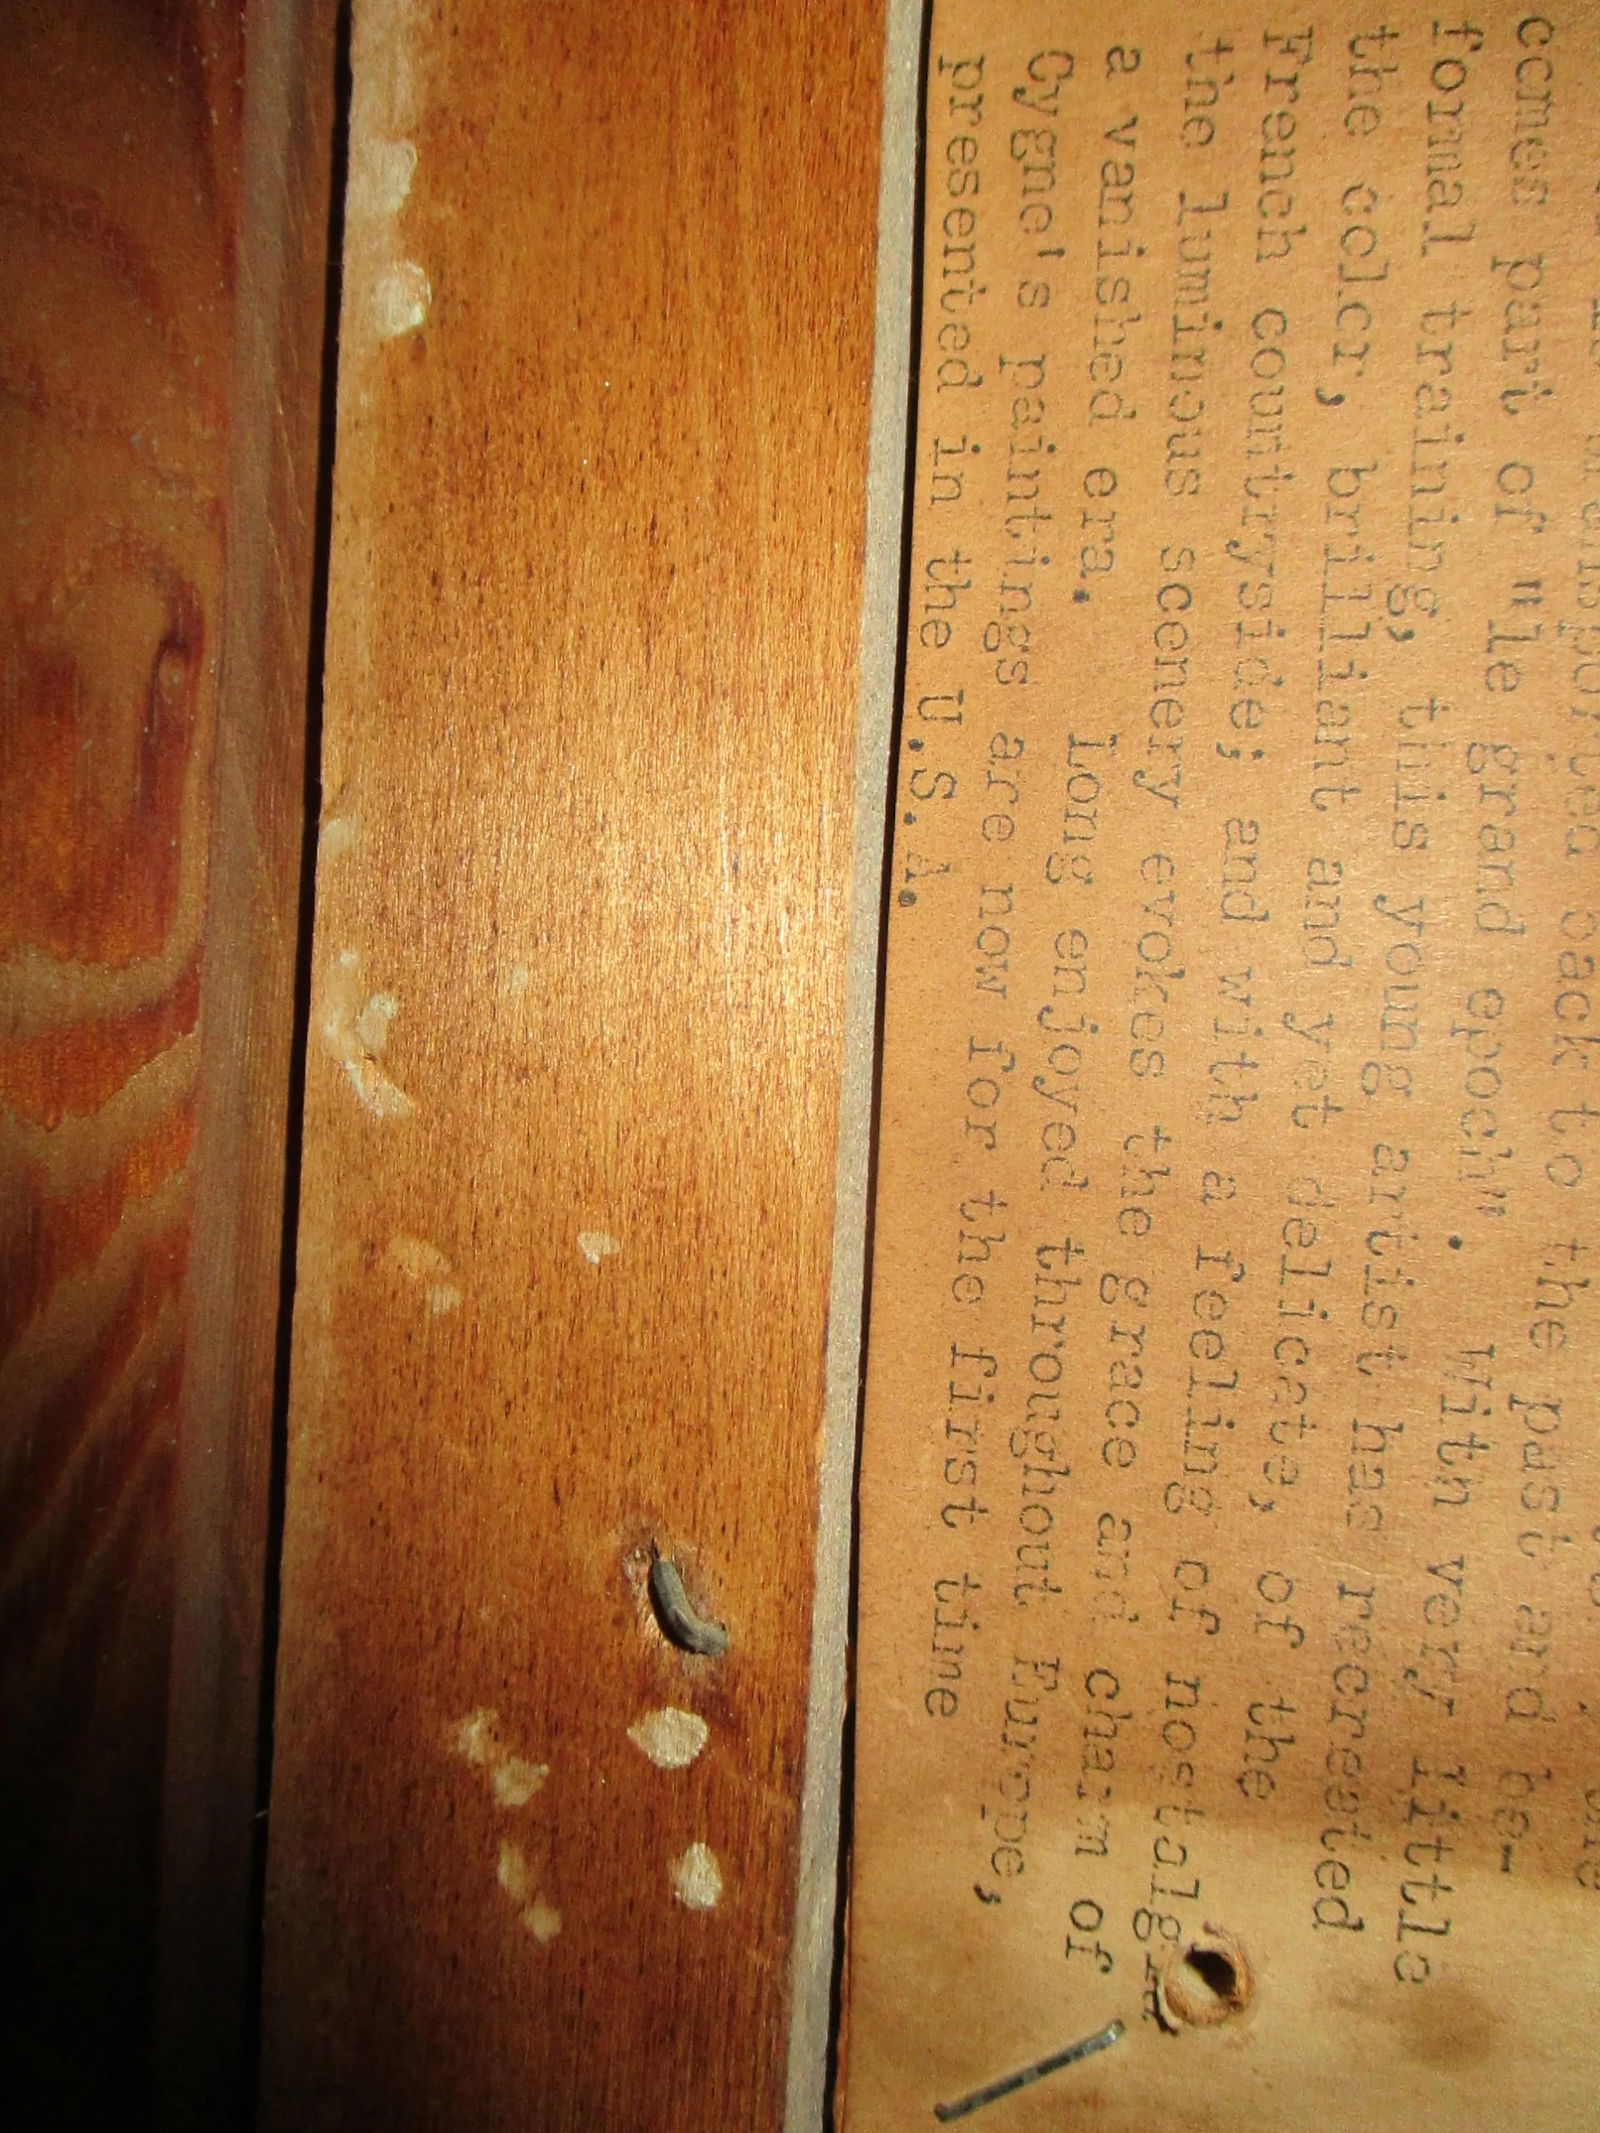 transported back to the past and be-
comes part of "le grand epoch". With very little
formal training, this young artist has recreated
the color, brilliant and yet delicate, of the
French countryside; and with a feeling of nostalgia
the luminous scenery evokes the grace and charm of
a vanished era. Long enjoyed throughout Europe,
Cygne's paintings are now for the first time
presented in the U.S.A.